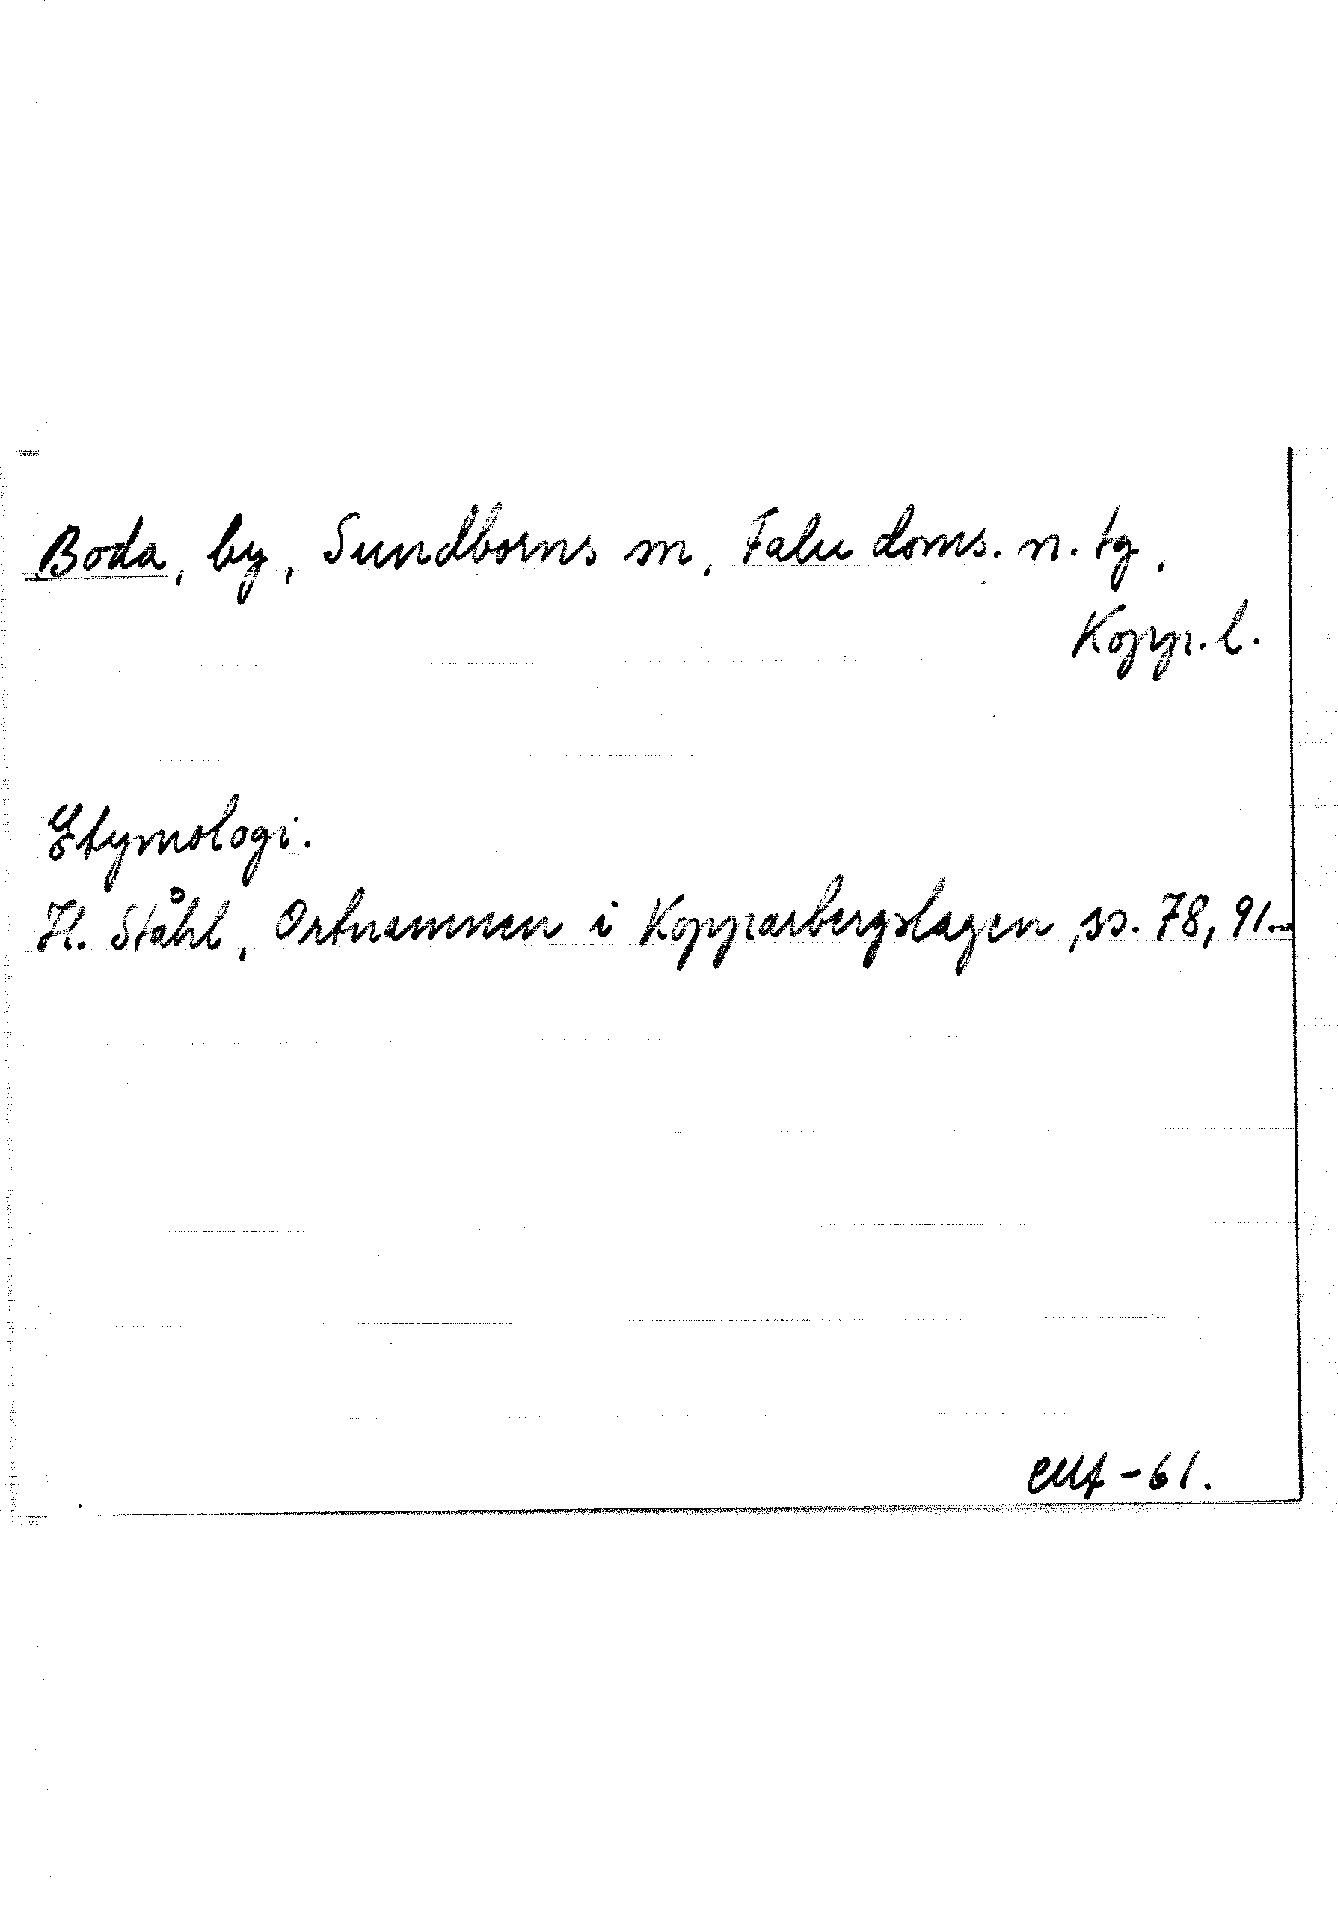 Boda, by, Sundborns sn, Falu doms. n. tg,
Kopp. l.
Etymologi.
H. Ståhl, Ortnamnen i Kopparbergslagen, ss. 78, 91.
-61.